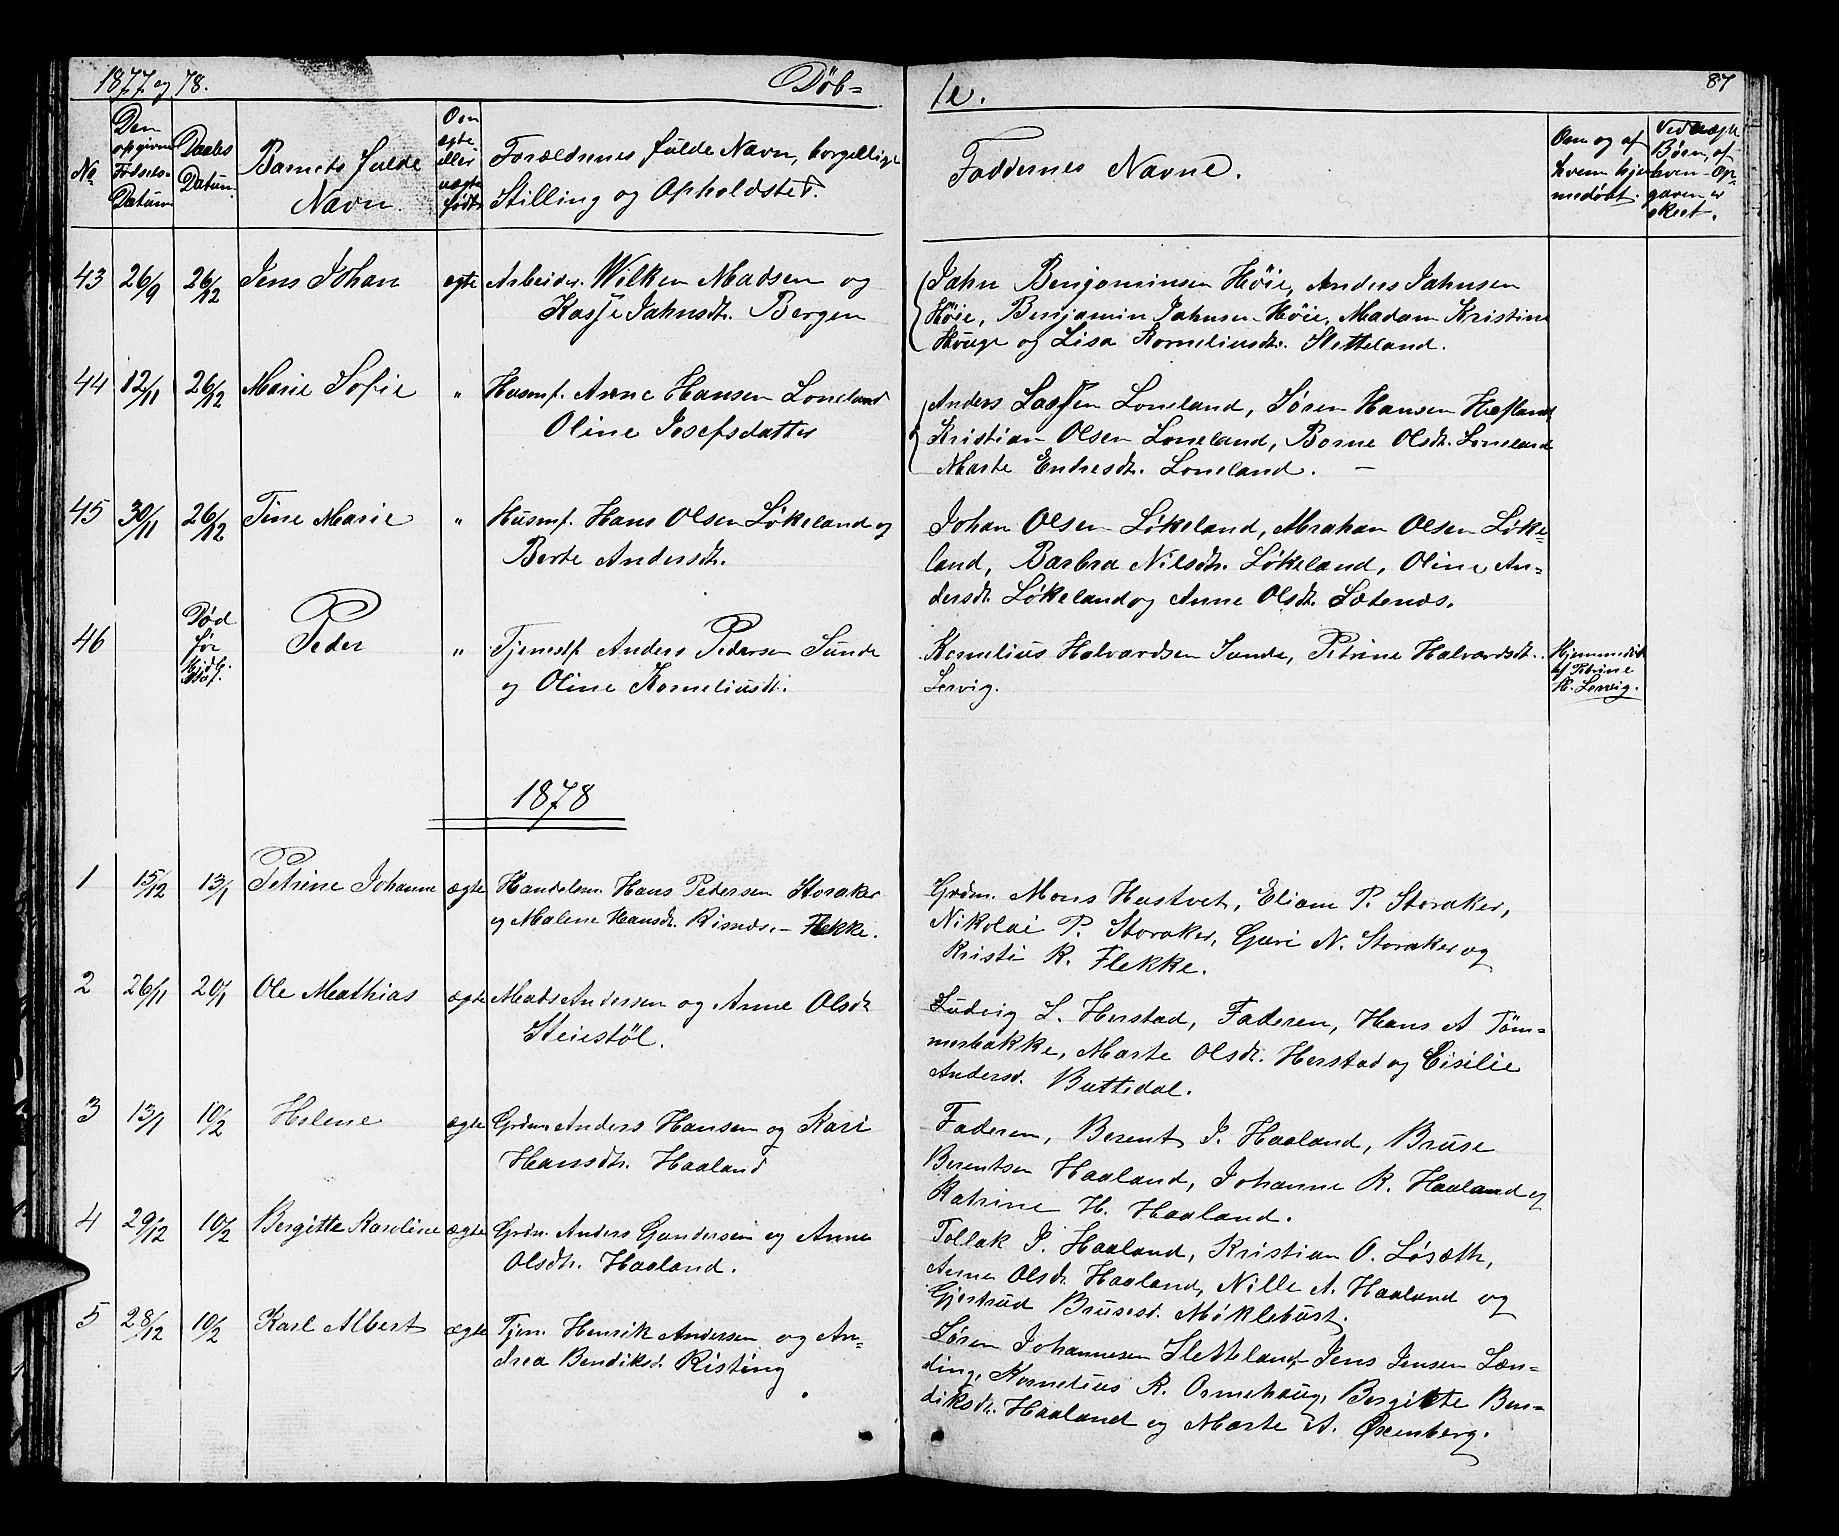 1877 og 78.
Døb-
te.
87
No
Den opgivne Fødsels-Datum
Daabs Datum
Barnets fulde Navn.
Om ægte eller uægte født
Forældrenes fulde Navn, borgellige Stilling og Opholdsted.
Faddernes Navne.
Om og af hvem hjem-
medøbt.
Ved uægte Børn, af hvem Op-
gaven er skeet.
43 26/9 26/12 Jens Johan ægte Arbeider. Wilken Madsen og
Jahnsdtr. Bergen
Jahn Benjaminsen Høie, Anders Jahnsen
Høie, Benjamin Jahnsen Høie, Madam Kristine
Houge og Lisa Korneliusdtr. Sletteland.
44 12/11 26/12 Marie Sofie " Husmf. Arne Hansen Loneland
Oline Josefsdatter
Anders Lassen Loneland, Søren Hansen Hæfland,
Kristian Olsen Loneland, Borne Olsdt. Loneland
Marte Endresdt. Loneland. –
45 30/11 26/12 Tine Marie " Husmf. Hans Olsen Løkeland og
Berte Andersdt.
Johan Olsen Løkeland, Abraham Olsen Løke-
land, Barbra Nilsdtr. Løkeland, Oline An-
dersdt. Løkeland og Anne Olsdt. Sætenes.
46 Død før Peder " Tjenestf. Anders Pedersen Sunde
og Oline Korneliusdt.
Kornelius Halvardsen Sunde, Petrine Halvardsdt.
Lervig.
Hjemmedøbt
af Petrine
H. Lervig.
1878
1 15/12 13/1 Petrine Johanne ægte Handelsm. Hans Pedersen Storaker
og Malene Hansdt. Risnes. – Flekke.
Grdm. Mons Hustvet, Eliam P. Storaker,
Nikolai P. Storaker, Guri N. Storaker og
Kristi R. Flekke.
2 26/11 20/1 Ole Mathias ægte Mads Andersen og Anne Olsdt
Steiestøl.
Ludvig L. Herstad, Faderen, Hans A Töm-
merbakke, Marte Olsdt. Herstad og Cisilie
Andersd. Buttedal.
3 13/1 10/2 Helene ægte Grdm Anders Hansen og Kari
Hansdtr. Haaland
Faderen, Berent J. Haaland, Bruse
Berentsen Haaland, Johanne R. Haaland og
Katrine H. Haaland.
4 29/12 10/2 Bergitte Karoline ægte Grdm. Anders Gundersen og Anne
Olsdtr. Haaland.
Tollak J. Haaland, Kristian O. Løsæth,
Anne Olsdt. Haaland, Nille A. Haaland og
Gjertrud Brusesd. Møklebust.
5 28/12 10/2 Karl Albert ægte Tjen. Henrik Andersen og An-
drea Bendiksd. Risting
Søren Johannesen Sletteland, Jens Jensen Læn-
ding, Kornelius R. Ormehaug, Bergitte Ben-
diksdt. Haaland og Marte A. Oxenberg.